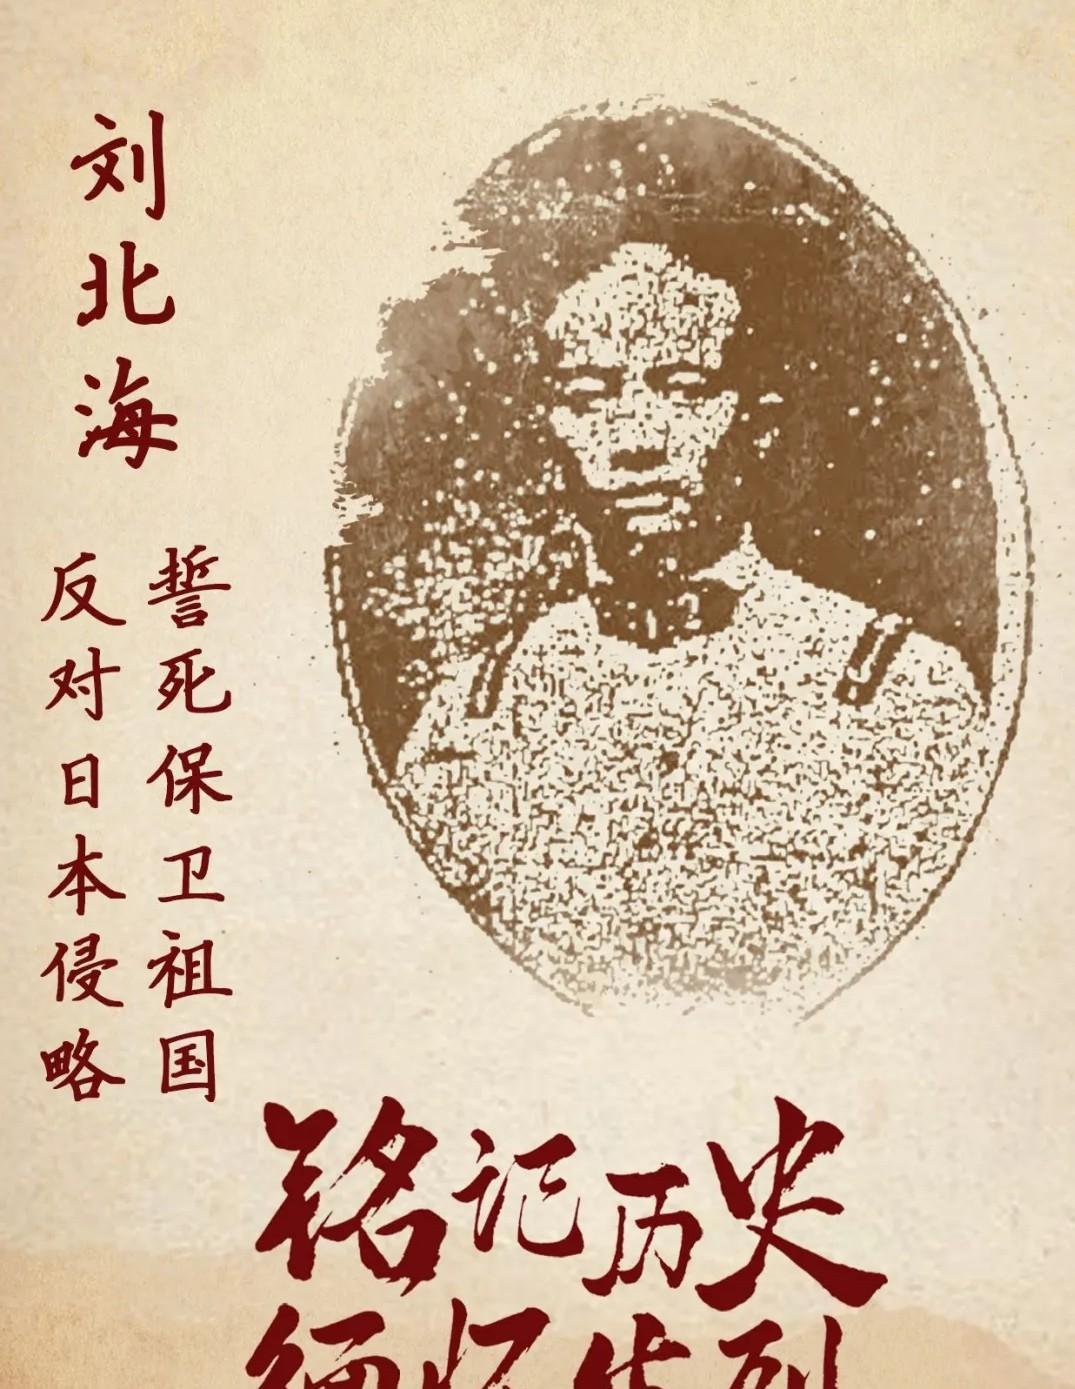 刘北海
誓死保卫祖国
反对日本侵略
铭记历史
缅怀先烈